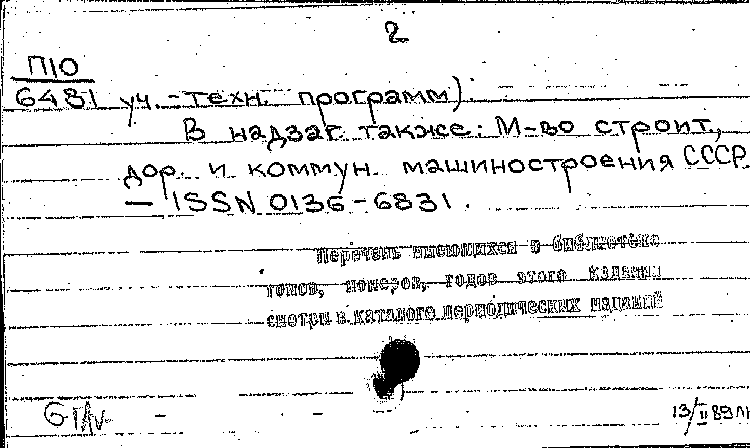 2
П10
6481 уч.-техн. программ).
В надзаг. также: М-во строит.,
дор. и коммун. машиностроения СССР.
— ISSN 0136-6831.
Перечень имеющихся в библиотеке
томов, номеров, годов этого издания
смотри в каталоге периодических изданий
13/II 89